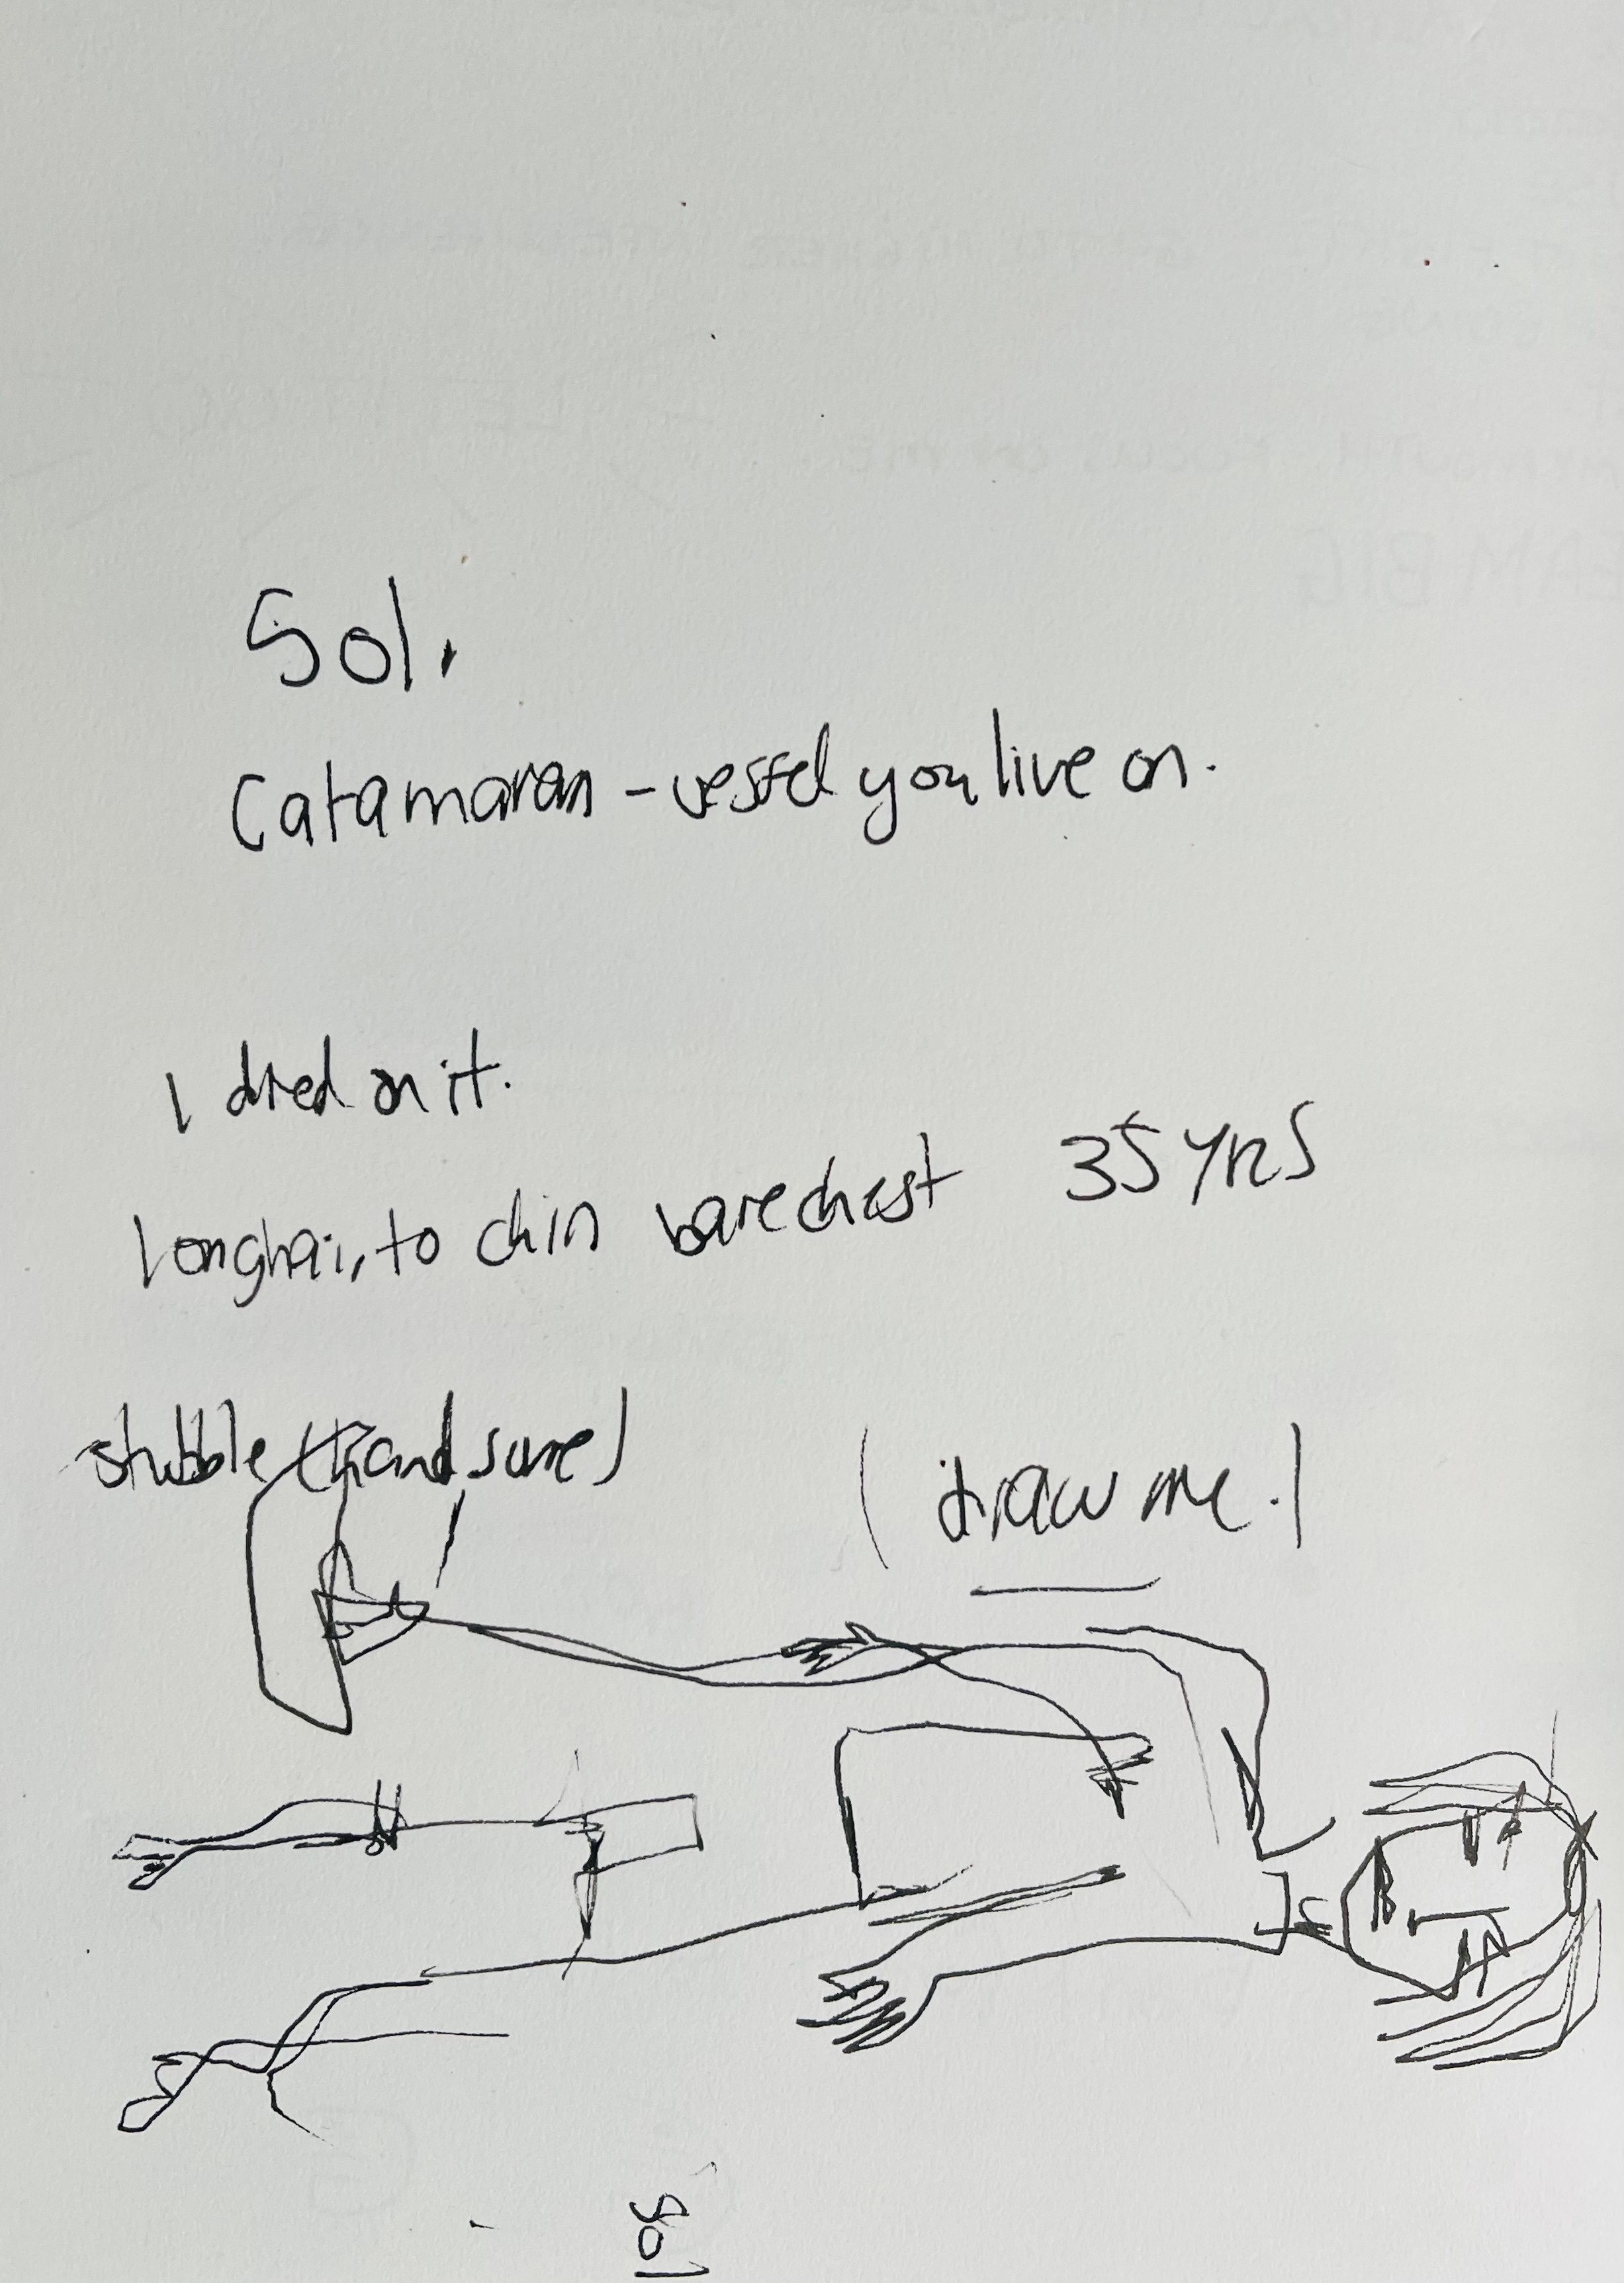 Sol.
Catamaran - vessel you live on.
I died on it.
longhair, to chin barechest 35 YRS
stubble (handsome) (draw me.)
Sol